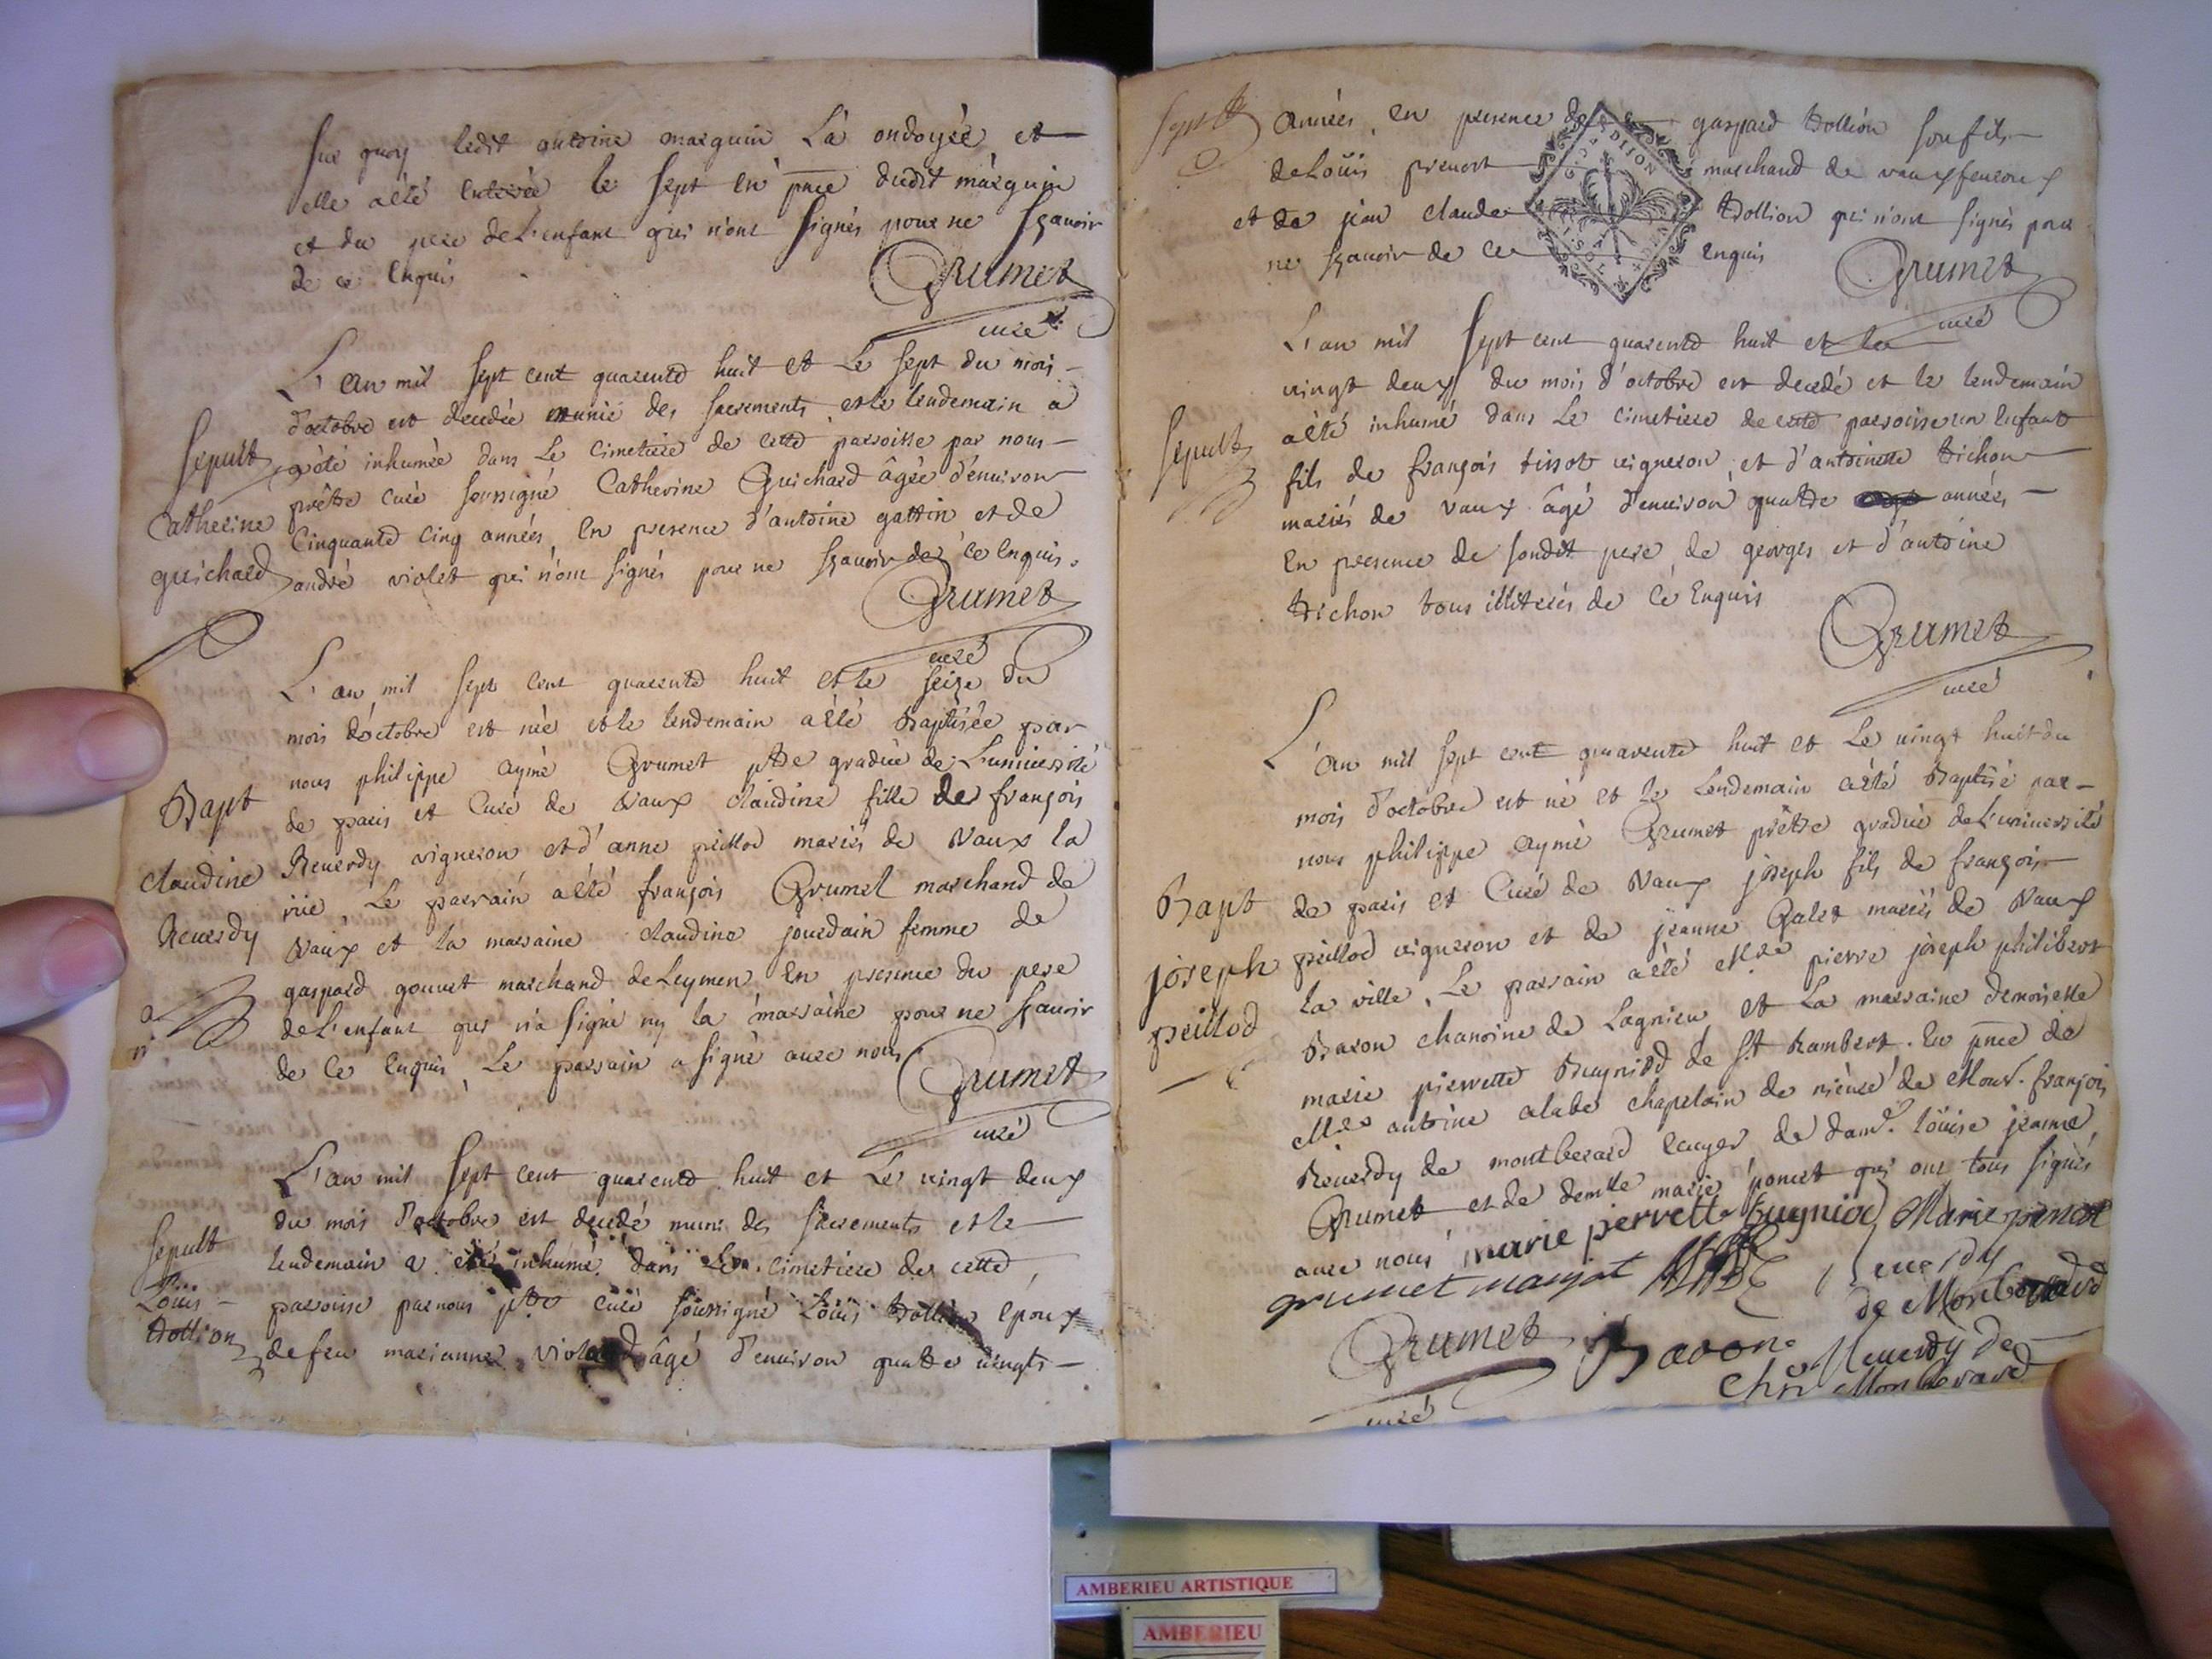 sur quoy ledit antoine marquin l'a ondoyée et
elle a été enterrée le sept en pnce dudit marquin
et du pere de l'enfant qui n'ont signés pour ne sçavoir
de ce enquis
Grumet
curé
L'an mil sept cent quarente huit et le sept du mois
d'octobre est decedée munie des sacrements et le lendemain a
été inhumée dans le cimetiere de cette paroisse par nous
prêtre curé soussigné Catherine Guichard âgée d'environ
Cinquante cinq années, en presence d'antoine gattin et de
andré violet qui n'ont signés pour ne sçavoir de ce enquis.
Sepult
Catherine
guichard
Grumet
curé
L'an mil sept cent quarente huit et le seize du
mois d'octobre est née et le lendemain a été Baptisée par
nous philippe aymé Grumet ptre gradué de l'université
de paris et curé de Vaux claudine fille de françois
Reverdy vigneron et d'anne peillod mariés de Vaux la
vile, Le parrain a été françois Grumet marchand de
Vaux et la marraine claudine jourdain femme de
gaspard gouvet marchand de Leymen, en presence du pere
de l'enfant qui n'a signé ny la marraine pour ne sçavoir
de ce enquis, Le parrain a signé avec nous
Bapt
claudine
Reverdy
Grumet
curé
L'an mil sept cent quarente huit et Le vingt deux
du mois d'octobre est decedé muni des sacrements et le
lendemain a été inhumé dans le cimetiere de cette
paroisse par nous ptre curé soussigné Loüis trollion epoux
de feu marianne violet âgé d'environ quatre vingts
Sepult
Loüis
trollion
Sepult
années, en presence de gaspard trollion son fils
de Loüis prevost marchand de vaux fevroux
et de jean claude trollion qui n'ont signés pour
ne sçavoir de ce enquis
G. DE DIJON
Grumet
curé
L'an mil sept cent quarente huit et le
vingt deux du mois d'octobre est decedé et le lendemain
a été inhumé dans le cimetiere de cette paroisse un enfant
fils de françois tissot vigneron, et d'antoinette trichon
mariés de Vaux âgé d'environ quatre années
en presence de sondit pere, de georges et d'antoine
trichon tous illiterés de ce enquis
Sepult
Grumet
curé
L'an mil sept cent quarente huit et le vingt huit du
mois d'octobre est né et le lendemain a été Baptisé par
nous philippe aymé Grumet prêtre gradué de l'université
de paris et curé de Vaux joseph fils de françois
peillod vigneron et de jeanne Galet mariés de Vaux
la ville, Le parrain a été Mre pierre joseph philibert
Baron chanoine de Lagnieu et la marraine demoiselle
marie pierrette Bugniod de St Rambert. En pnce de
Mre antoine alabe chapelain de de Monsr. françois
Reverdy de montberard ecuyer de dame. loüise jeanne
Grumet et de demlle marie poncet qui ont tous signés
avec nous marie pierrette bugniod Marie poncet
Bapt
joseph
peillod
grumet Reverdy
de Monberard
Grumet Baron Reverdy de
curé chr Monberard
AMBERIEU ARTISTIQUE
AMBERIEU